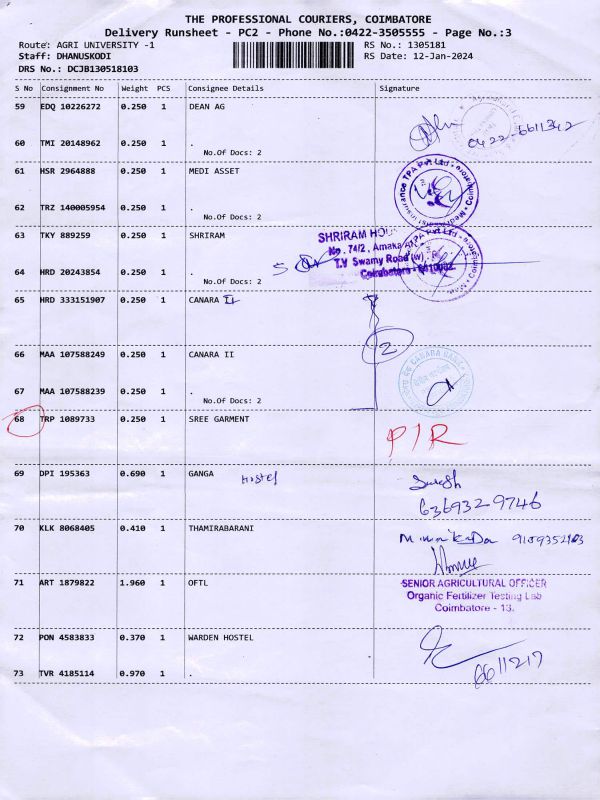 THE PROFESSIONAL COURIERS, COIMBATORE
Delivery Runsheet - PC2 - Phone No.:0422-3505555 - Page No.:3
Route: AGRI UNIVERSITY -1
RS No.: 1305181
Staff: DHANUSKODI
RS Date: 12-Jan-2024
DRS No.: DCJB130518103
S No Consignment No Weight PCS Consignee Details Signature
59 EDQ 10226272 0.250 1 DEAN AG
0422-6611342
60 TMI 20148962 0.250 1 .
No.Of Docs: 2
61 HSR 2964888 0.250 1 MEDI ASSET
62 TRZ 140005954 0.250 1 .
No.Of Docs: 2
63 TKY 889259 0.250 1 SHRIRAM
SHRIRAM HOU
No. 74/2, Amaka
T.V Swamy Road (w)
Coimbatore
64 HRD 20243854 0.250 1 .
No.Of Docs: 2
65 HRD 333151907 0.250 1 CANARA II
2
66 MAA 107588249 0.250 1 CANARA II
CANARA BANK
67 MAA 107588239 0.250 1 .
No.Of Docs: 2
68 TRP 1089733 0.250 1 SREE GARMENT
P/R
69 DPI 195363 0.690 1 GANGA Hostel
6369329746
70 KLK 8068405 0.410 1 THAMIRABARANI
71 ART 1879822 1.960 1 OFTL
SENIOR AGRICULTURAL OFFICER
Organic Fertilizer Testing Lab
Coimbatore - 13.
72 PON 4583833 0.370 1 WARDEN HOSTEL
6611217
73 TVR 4185114 0.970 1 .